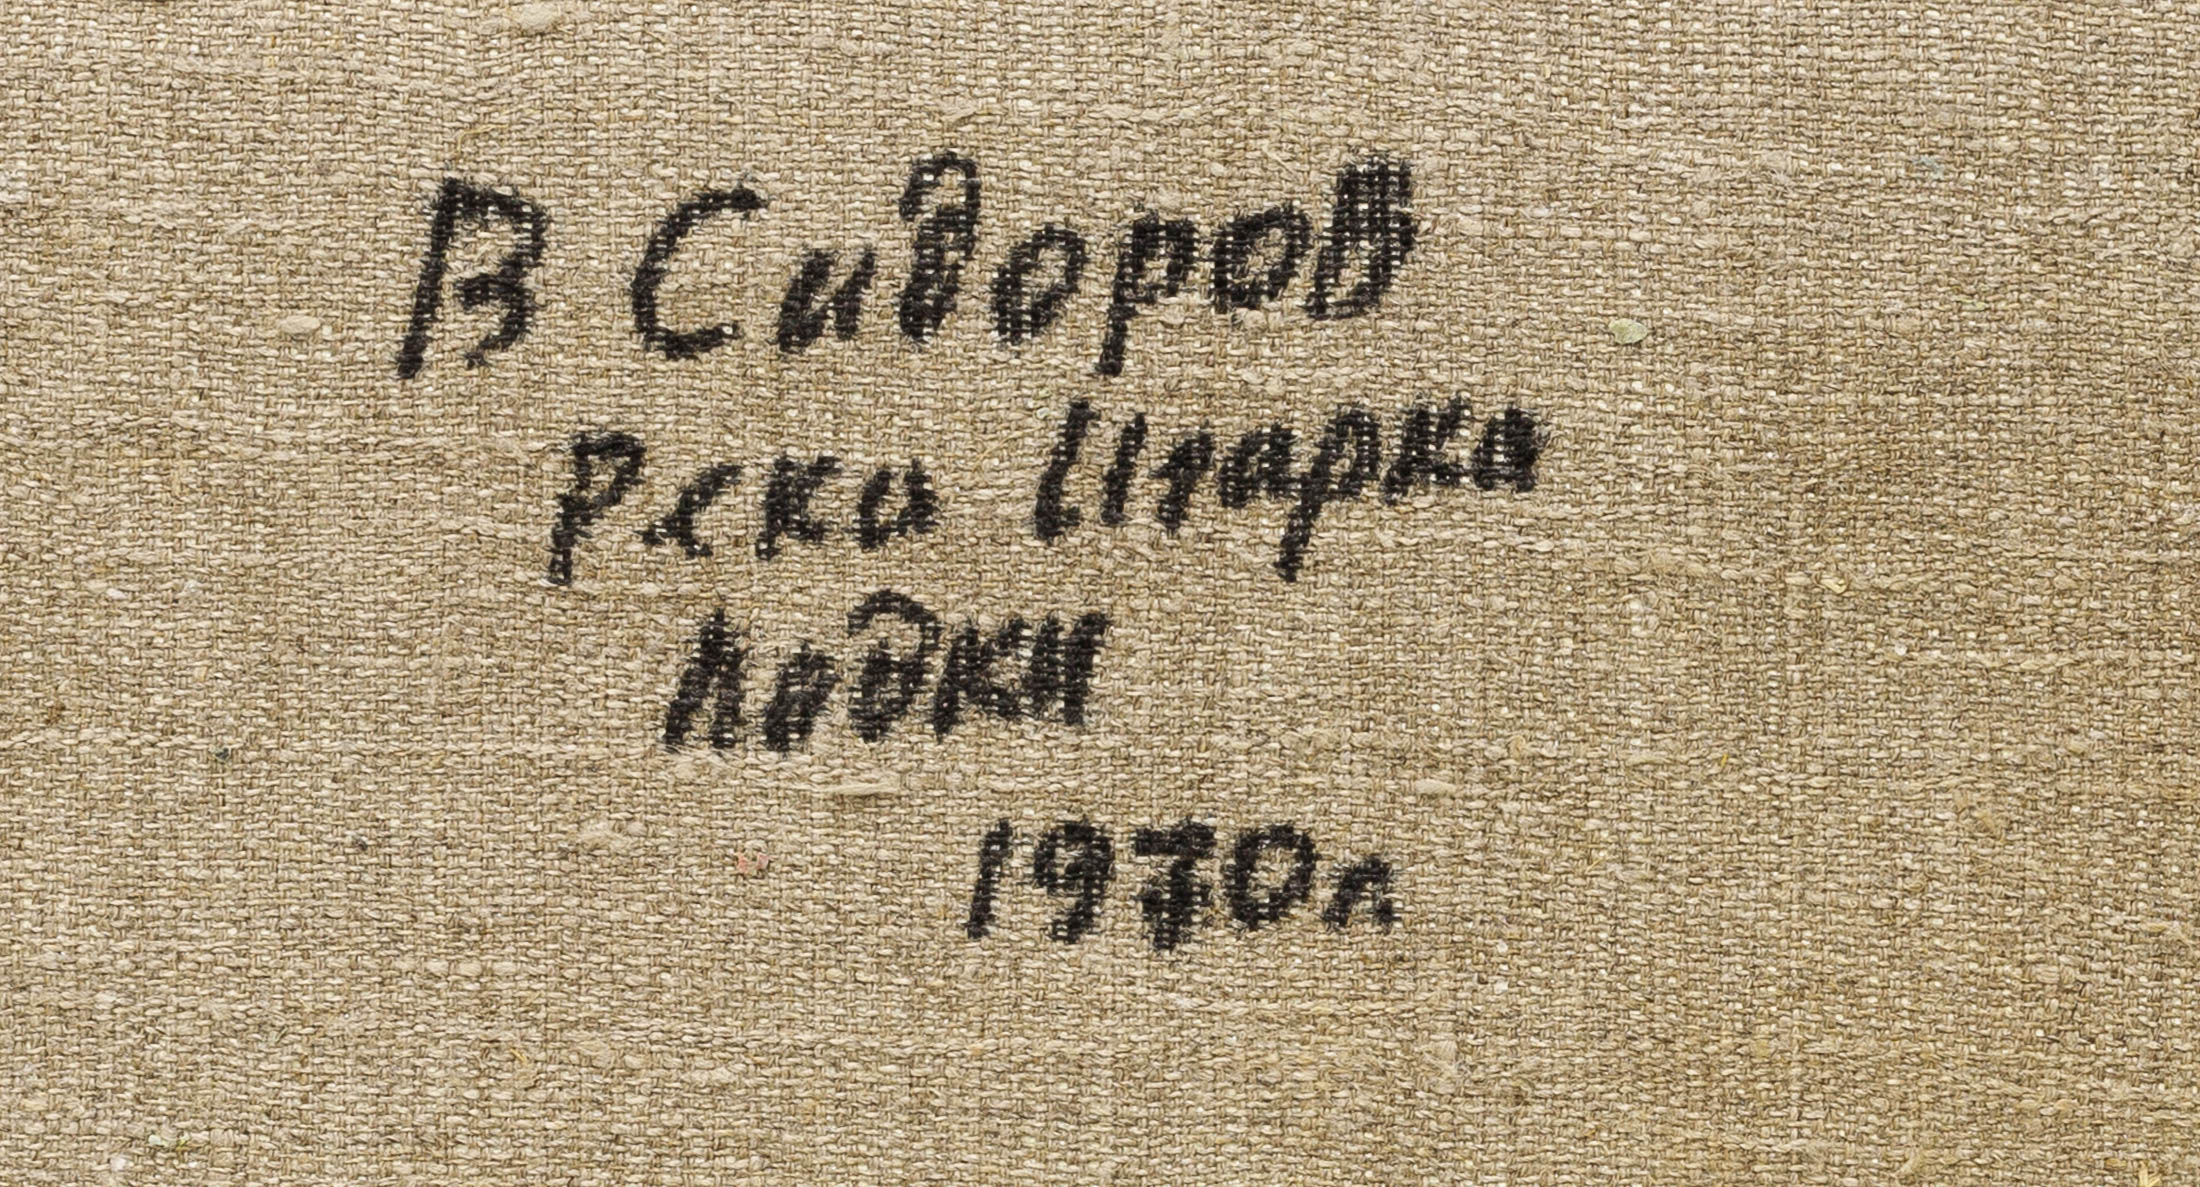 В Сидоров
Река Цнарка
Лодки
1970г